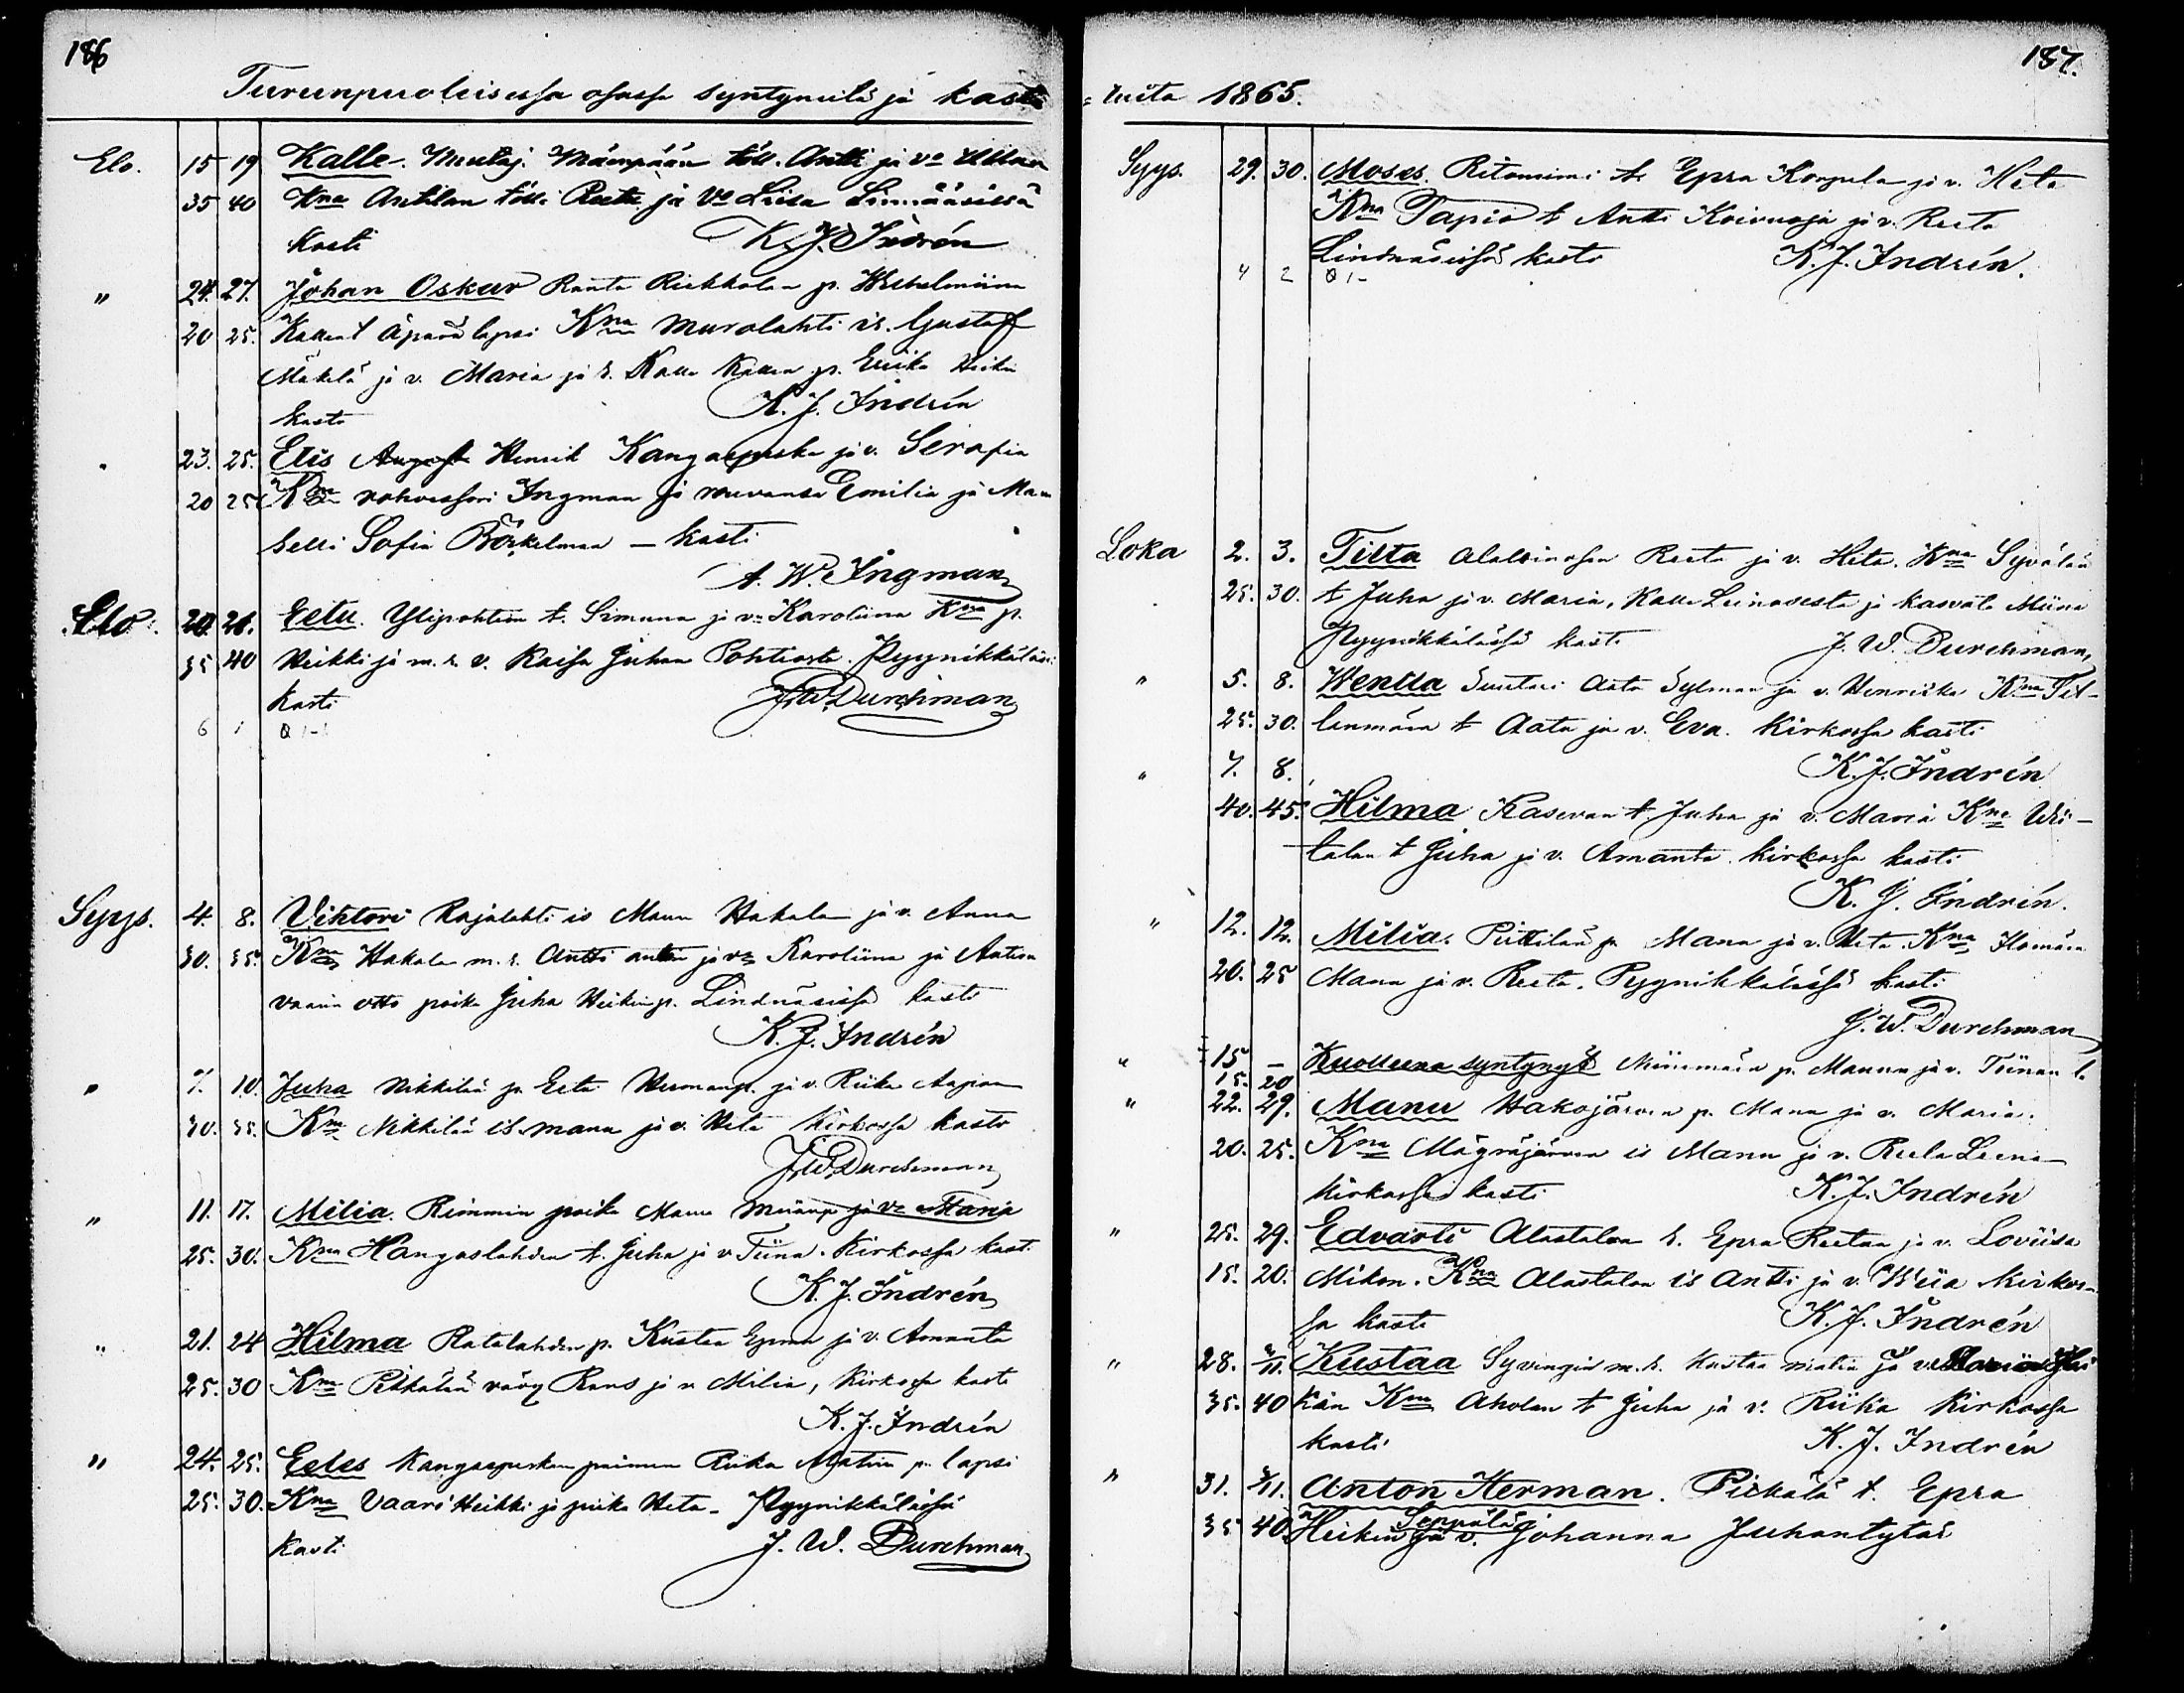 186
Turunpuoleisessa osassa syntyneitä ja kaste
Elo. 15 19 Kalle. Muutaj. Mäenpään töll. Antti ja vo Ullan
35 40 Kna Anttilan töll. Reetu ja Vo Liisa Linnääsissä
kasti K. J. Indrén
" 24. 27. Johan Oskar Ranta Riekkolan p. Wilhelmiina
20 25. Kallent. äpärä lapsi Kna Murolahti is. Gustaf
Mäkelä ja v. Maria ja r. Kalle Kallen p. Eerika Heikin
kasti K. J. Indrén
" 23. 25. Elis August Henrik Kangaspeska ja v. Serafia
20 25 Kna rohvessori Ingman ja rouvansa Emilia ja Mam
selli Sofia Böökelman – kasti
A. W. Ingman
Elo. 20. 26. Eetu. Ylipohtion t. Simuna ja vo Karoliina Kna p.
35 40 Heikki ja m. r. v. Kaisa Juhan Pohtiosta. Pyynikkäläs
kasti J. W. Durchman
6 1
Syys. 4. 8. Vihtori Rajalahti is Manu Hakala ja v. Anna
30. 35. Kna Hakala m. r. Antti antin ja vo Karoliina ja Antion
vaarin otto poika Juha Heikin p. Lindnäsissä kasti
K. J. Indrén
" 7. 10. Juha Nikkilän p. Eetu Hermanp. ja v. Riika Aapian
30. 35. Kna Nikkilän is. manu ja v. Heta Kirkossa kasti
J. W. Durchman
" 11. 17. Milia. Rimmin poika Manu Manup ja vo Maria
25. 30. Kna Kangaslahden t. Juha ja v. Tiina. Kirkossa kast.
K. J. Indrén
" 21. 24 Hilma Ratalahden p. Kustaa Epran ja v. Amanta
25. 30 Kna Pitkälän vävy Rans ja v. Milia, Kirkossa kasti
K. J. Indrén
" 24. 25. Eeles Kangaspeskan piimen Riika Matin p. lapsi
25. 30. Kna Vaari Heikki ja piika Heta. Pyynikkälässä
kasti J. W. Durchman
187.
tuita 1865.
Syys. 29. 30. Moses. Ritoniemi t. Epra Korpula ja v. Heta
Kna Tapio t Antti Koivuoja ja v. Reeta
Lindnäsissä kasti K. J. Indrén.
4 2
Loka 2. 3. Tilta Reetu ja v. Heta. Kna Syvälän
25. 30. t Juha ja v. Maria, Kalle Leinosesta ja kasvati Miina
Pyynikkälässä kasti J. W. Durchman
" 5. 8. Wenlla Suutari Aatu Sylman ja v. Henriika Kna Pel-
25. 30. lenmään t Aatu ja v. Eva. Kirkossa kasti
" 7. 8. K. J. Indrén
40. 45. Hilma Kasevan t. Juha ja v. Maria Kna Wii-
talan t Juha ja v. Amanta. Kirkossa kasti
K. J. Indrén.
" 12. 12. Milia. Piittilän p. Manu ja v. Heta. Kna Ilomäen
20. 25 Manu ja v. Reeta. Pyynikkälässä kasti
J. W. Durchman
" 15 – Kuolleena syntynyt Niinimäen p. Manun ja v. Tiinan l.
15. 20
" 22. 29. Manu Hakojärven p. Manu ja v. Maria.
20. 25. Kna Mägräjärven is Manu ja v. Reeta Leena
Kirkossa kasti K. J. Indrén
" 25. 29. Edvarti Alastalon r. Epra Reetun ja v. Loviisa
15. 20. Mikon. Kna Alastalon is Antti ja v. Wiia Kirkos-
sa kasti K. J. Indrén
" 28. /11. Kustaa Syvingin m. r. Kustaa matin ja v. Maria
35. 40 kän Kna Aholan t Juha ja v. Riika Kirkossa
kasti K. J. Indrén
" 31. /11. Anton Herman. Pitkälä t. Epra
Seppälä
35 40 Heikin ja v. Johanna Juhantytär